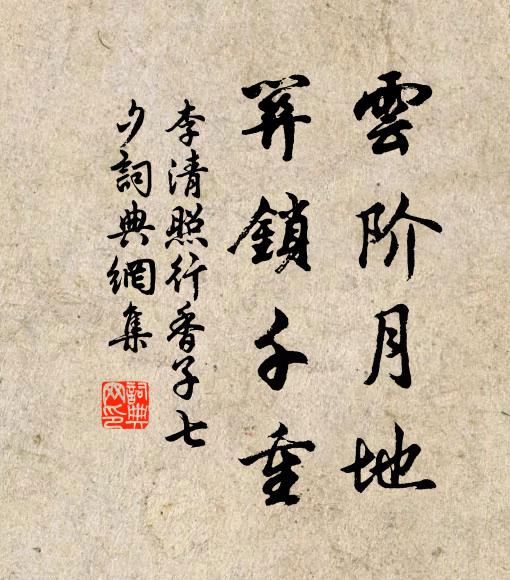 雲阶月地
關鎖千重
李清照行香子七
夕詞典網集
詞典
网印